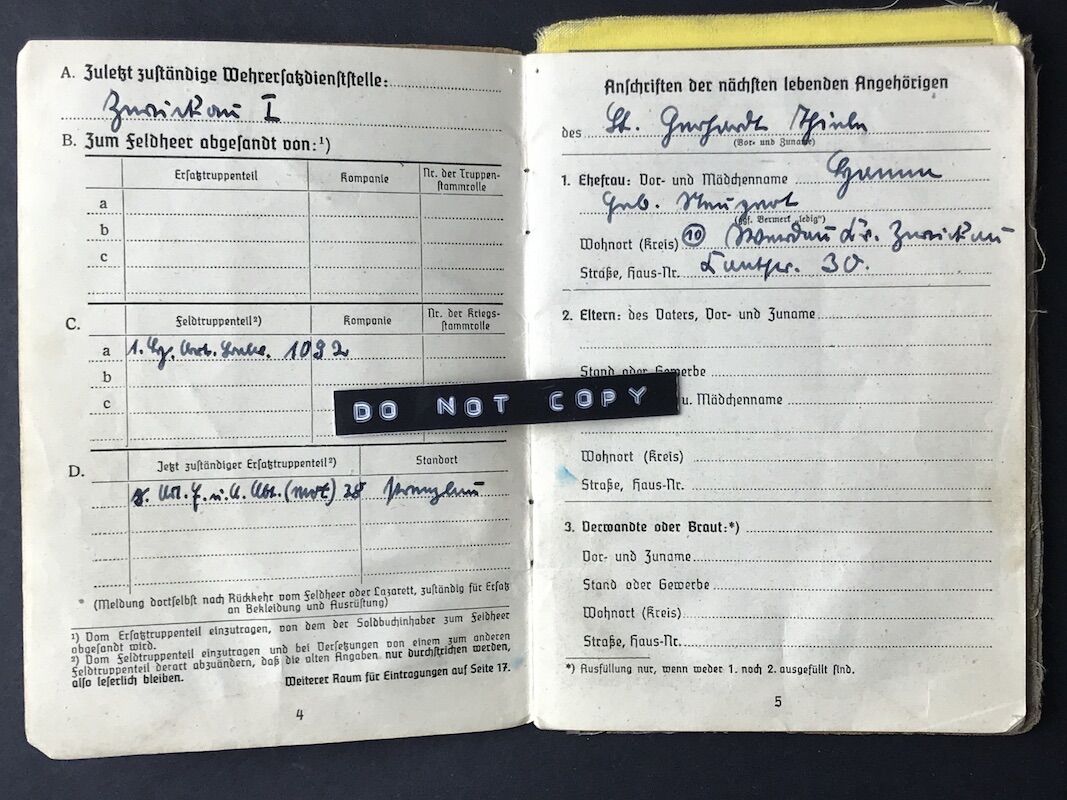 A. Zuletzt zuständige Wehrersatzdienststelle:
Zwickau I
B. Zum Feldheer abgesandt von:¹)
Ersatztruppenteil Kompanie Nr. der Truppen-
stammrolle
a
b
c
C. Feldtruppenteil²) Kompanie Nr. der Kriegs-
stammrolle
a 1092
b
c
D. Jetzt zuständiger Ersatztruppenteil²) Standort
Abt. (mot) 38 Prenzlau
* (Meldung dortselbst nach Rückkehr vom Feldheer oder Lazarett, zuständig für Ersatz
an Bekleidung und Ausrüstung)
¹) Vom Ersatztruppenteil einzutragen, von dem der Soldbuchinhaber zum Feldheer
abgesandt wird.
²) Vom Feldtruppenteil einzutragen und bei Versetzungen von einem zum anderen
Feldtruppenteil derart abzuändern, daß die alten Angaben nur durchstrichen werden,
also leserlich bleiben. Weiterer Raum für Eintragungen auf Seite 17.
4
DO NOT COPY
Anschriften der nächsten lebenden Angehörigen
des Gerhardt Thiele
(Vor- und Zuname)
1. Ehefrau: Vor- und Mädchenname
geb.
(ggf. Vermerk „ledig")
Wohnort (Kreis) (10) Werdau Kr. Zwickau
Straße, Haus-Nr. 30.
2. Eltern: des Vaters, Vor- und Zuname
Stand oder Gewerbe
u. Mädchenname
Wohnort (Kreis)
Straße, Haus-Nr.
3. Verwandte oder Braut:*)
Vor- und Zuname
Stand oder Gewerbe
Wohnort (Kreis)
Straße, Haus-Nr.
*) Ausfüllung nur, wenn weder 1. noch 2. ausgefüllt sind.
5